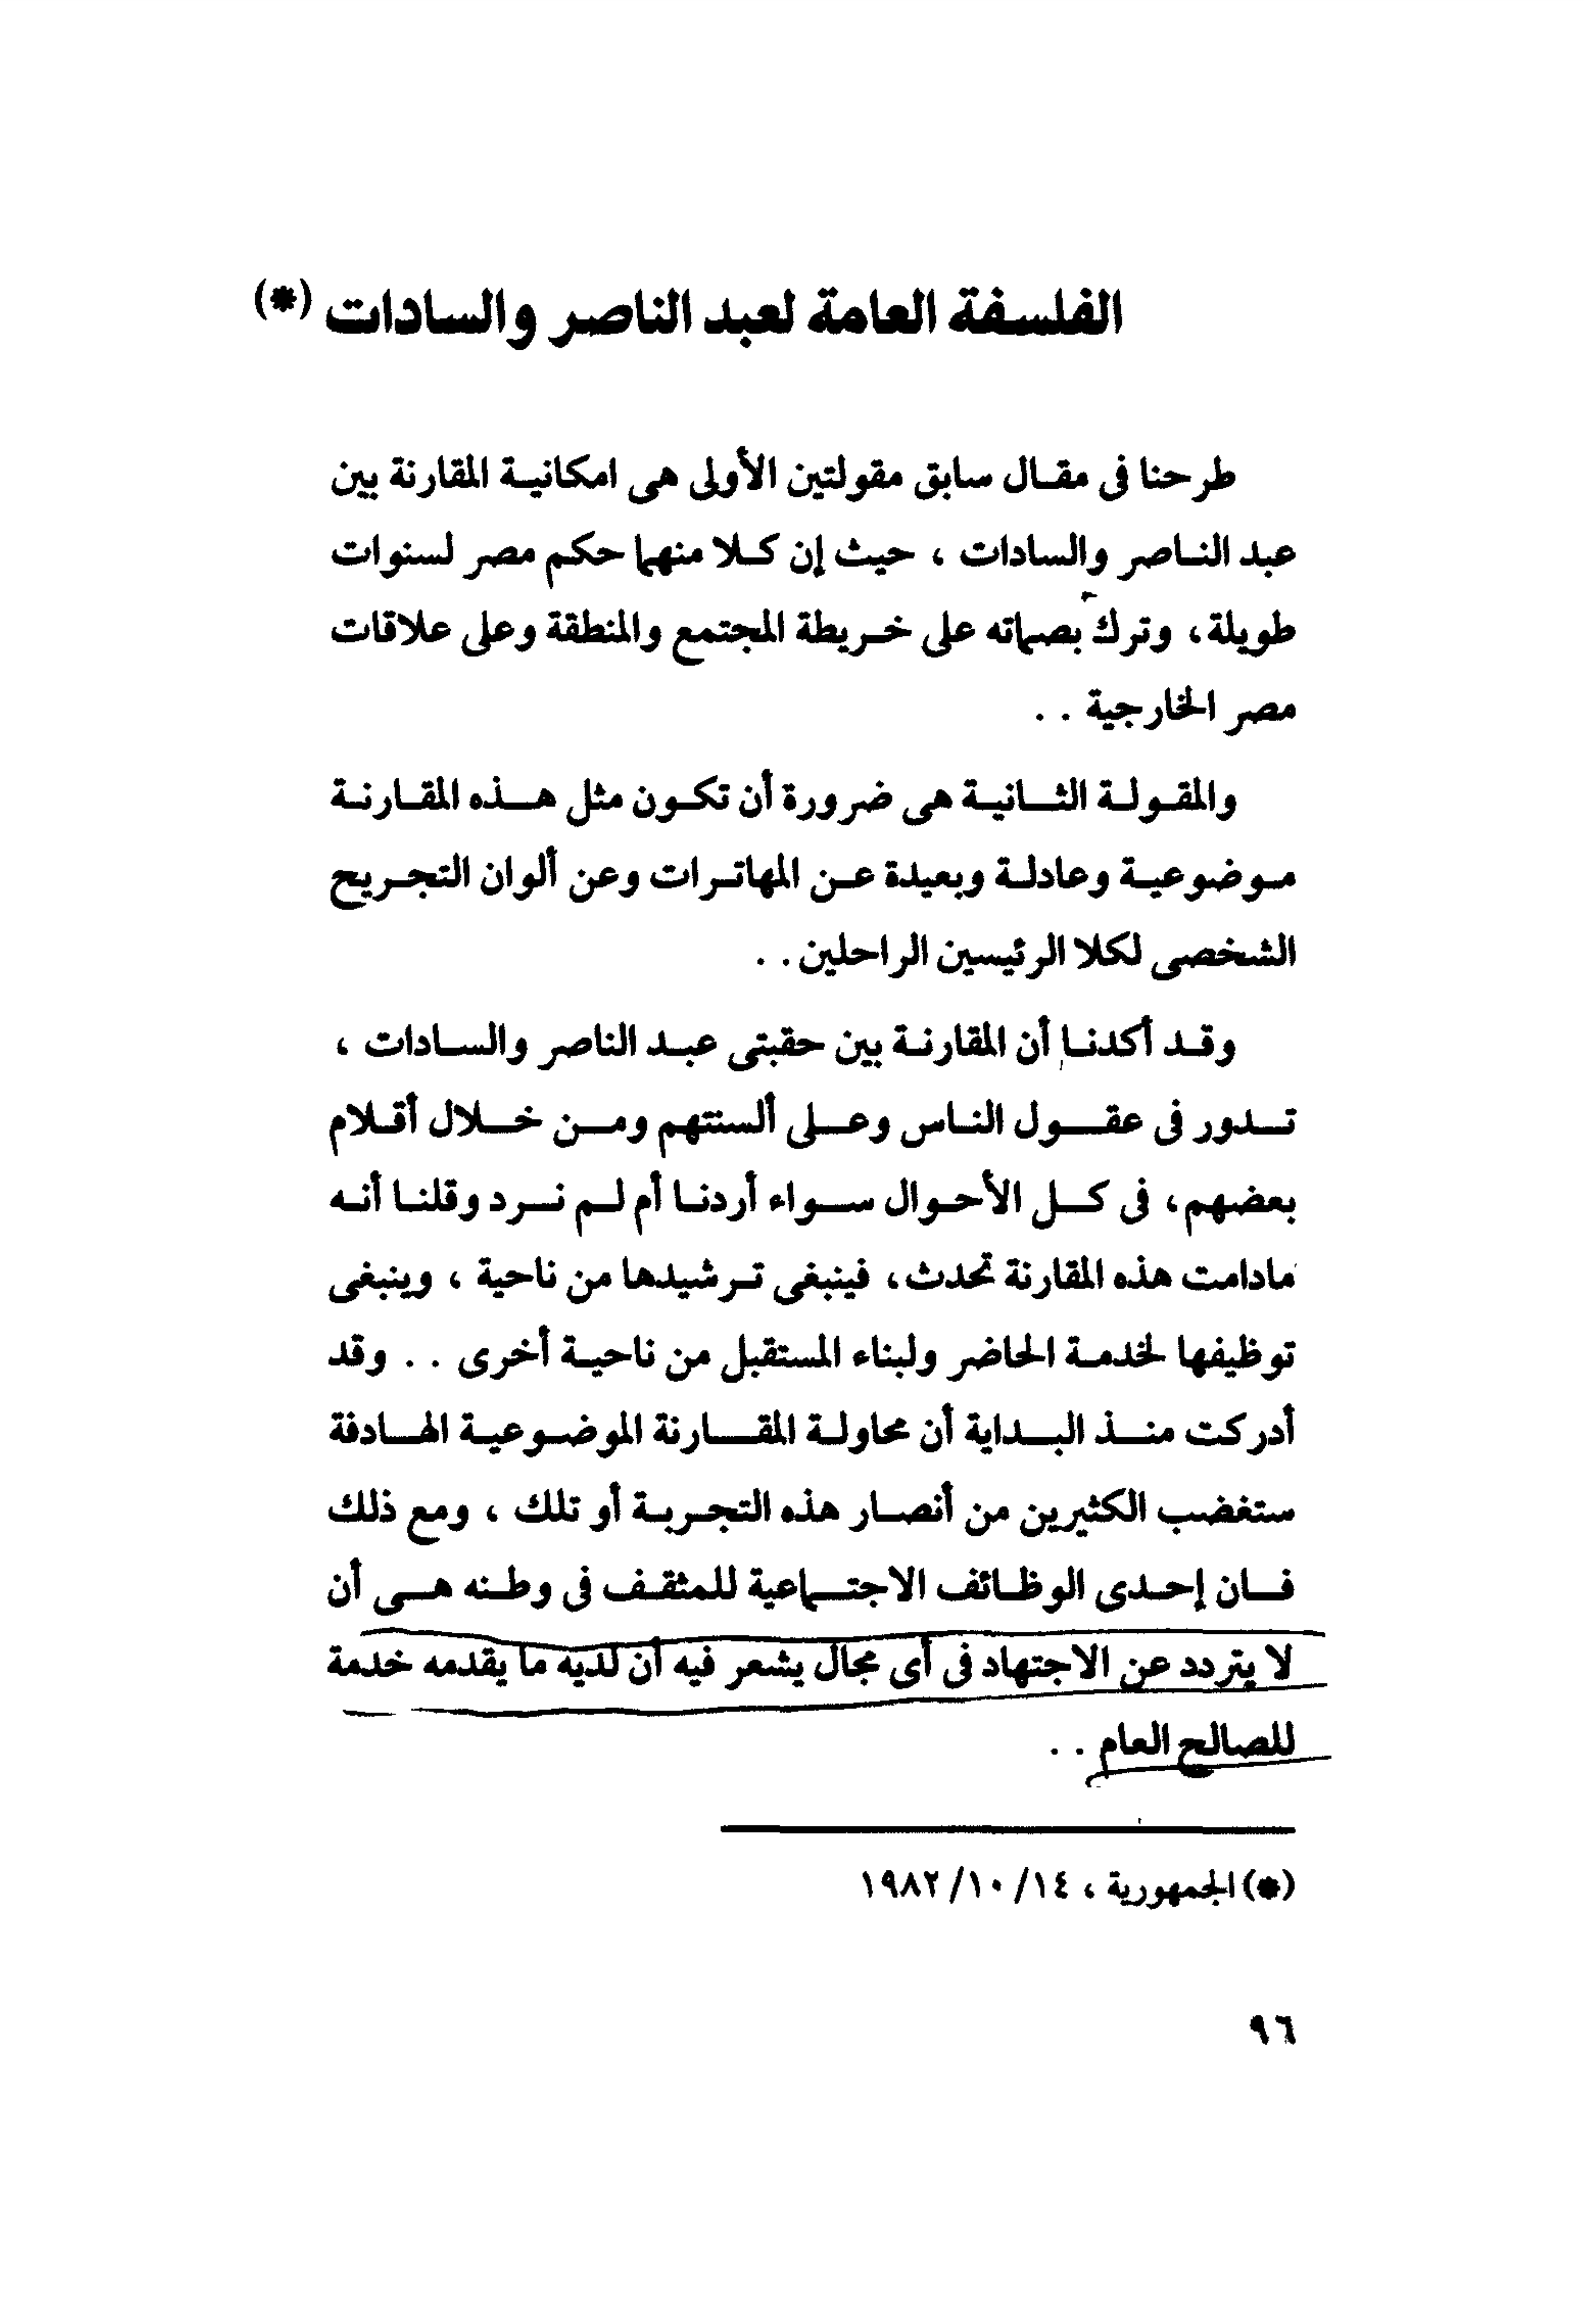 الفلسفة العامة لعبد الناصر والسادات (*)
طرحنا فى مقال سابق مقولتين الأولى هى امكانية المقارنة بين
عبد الناصر والسادات ، حيث إن كلا منهما حكم مصر لسنوات
طويلة ، وترك بصماته على خريطة المجتمع والمنطقة وعلى علاقات
مصر الخارجية . .
والمقولة الثانية هى ضرورة أن تكون مثل هذه المقارنة
موضوعية وعادلة وبعيدة عن المهاترات وعن ألوان التجريح
الشخصى لكلا الرئيسين الراحلين . .
وقد أكدنا أن المقارنة بين حقبتى عبد الناصر والسادات ،
تدور فى عقول الناس وعلى ألسنتهم ومن خلال أقلام
بعضهم ، فى كل الأحوال سواء أردنا أم لم نرد وقلنا أنه
مادامت هذه المقارنة تحدث ، فينبغى ترشيدها من ناحية ، وينبغى
توظيفها لخدمة الحاضر ولبناء المستقبل من ناحية أخرى . . وقد
أدركت منذ البداية أن محاولة المقارنة الموضوعية الهادفة
ستغضب الكثيرين من أنصار هذه التجربة أو تلك ، ومع ذلك
فان إحدى الوظائف الاجتماعية للمثقف فى وطنه هى أن
لا يتردد عن الاجتهاد فى أى مجال يشعر فيه أن لديه ما يقدمه خدمة
للصالح العام . .
(*) الجمهورية ، ١٤/ ١٠/ ١٩٨٢
٩٦